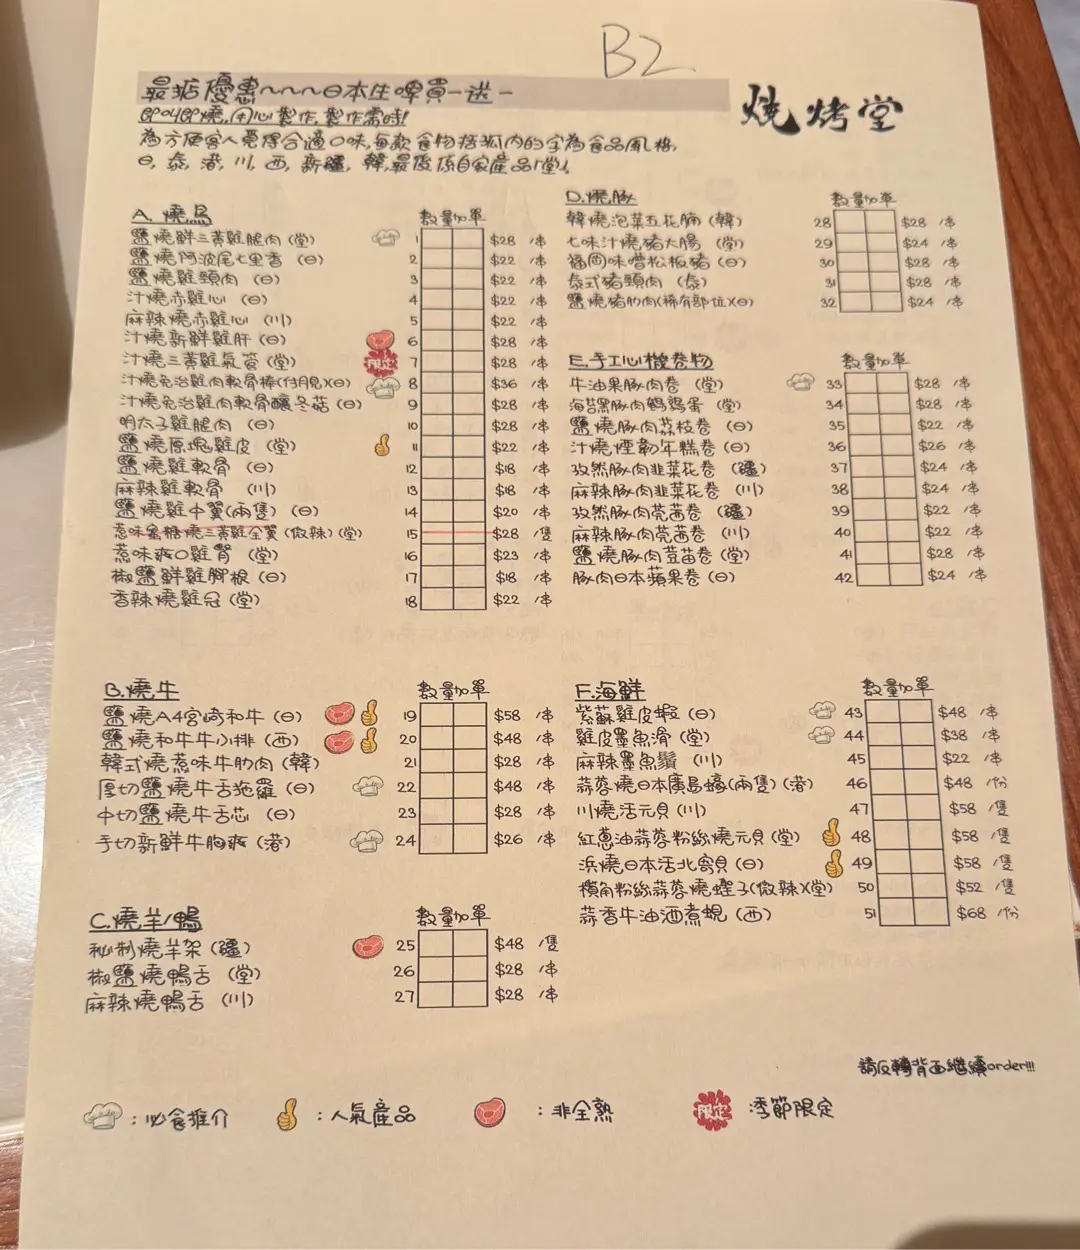 B2
最抵優惠~~~日本生啤買一送一
燒烤堂
即叫即燒,用心製作,製作需時!
為方便客人覓得合適口味,每款食物括弧內的字為食品風格,
日,泰,港,川,西,新疆,韓,最後係自家產品「堂」
A. 燒鳥 數量 加單
鹽燒鮮三黃雞腿肉(堂) 1 $28 /串
鹽燒阿波尾七里香(日) 2 $22 /串
鹽燒雞頸肉(日) 3 $22 /串
汁燒赤雞心(日) 4 $22 /串
麻辣燒赤雞心(川) 5 $22 /串
汁燒新鮮雞肝(日) 6 $28 /串
汁燒三黃雞氣管(堂) 限定 7 $28 /串
汁燒免治雞肉軟骨棒(付月見)(日) 8 $36 /串
汁燒免治雞肉軟骨釀冬菇(日) 9 $28 /串
明太子雞腿肉(日) 10 $28 /串
鹽燒原塊雞皮(堂) 11 $22 /串
鹽燒雞軟骨(日) 12 $18 /串
麻辣雞軟骨(川) 13 $18 /串
鹽燒雞中翼(兩隻)(日) 14 $20 /串
惹味蜜糖燒三黃雞全翼(微辣)(堂) 15 $28 /隻
惹味爽口雞腎(堂) 16 $23 /串
椒鹽鮮雞腳根(日) 17 $18 /串
香辣燒雞冠(堂) 18 $22 /串
B.燒牛 數量加單
鹽燒A4宮崎和牛(日) 19 $58 /串
鹽燒和牛牛小排(西) 20 $48 /串
韓式燒惹味牛肋肉(韓) 21 $28 /串
厚切鹽燒牛舌拖羅(日) 22 $48 /串
中切鹽燒牛舌芯(日) 23 $28 /串
手切新鮮牛胸爽(港) 24 $26 /串
C.燒羊/鴨 數量加單
秘制燒羊架(疆) 25 $48 /隻
椒鹽燒鴨舌(堂) 26 $28 /串
麻辣燒鴨舌(川) 27 $28 /串
D.燒豚 數量加單
韓燒泡菜五花腩(韓) 28 $28 /串
七味汁燒豬大腸(堂) 29 $24 /串
福岡味噌松板豬(日) 30 $28 /串
泰式豬頸肉(泰) 31 $28 /串
鹽燒豬肋肉(稀有部位)(日) 32 $24 /串
E.手工心機卷物 數量加單
牛油果豚肉卷(堂) 33 $28 /串
海苔黑豚肉鵪鶉蛋(堂) 34 $28 /串
鹽燒豚肉荔枝卷(日) 35 $22 /串
汁燒煙韌年糕卷(日) 36 $26 /串
孜然豚肉韭菜花卷(疆) 37 $24 /串
麻辣豚肉韭菜花卷(川) 38 $24 /串
孜然豚肉芫茜卷(疆) 39 $22 /串
麻辣豚肉芫茜卷(川) 40 $22 /串
鹽燒豚肉荳苗卷(堂) 41 $28 /串
豚肉日本蘋果卷(日) 42 $24 /串
F.海鮮 數量加單
紫蘇雞皮蝦(日) 43 $48 /串
雞皮墨魚滑(堂) 44 $38 /串
麻辣墨魚鬚(川) 45 $22 /串
蒜蓉燒日本廣島蠔(兩隻)(港) 46 $48 /份
川燒活元貝(川) 47 $58 /隻
紅蔥油蒜蓉粉絲燒元貝(堂) 48 $58 /隻
浜燒日本活北寄貝(日) 49 $58 /隻
欖角粉絲蒜蓉燒蟶子(微辣)(堂) 50 $52 /隻
蒜香牛油酒煮蜆(西) 51 $68 /份
請反轉背面繼續order!!!
:必食推介 :人氣產品 :非全熟 限定 季節限定